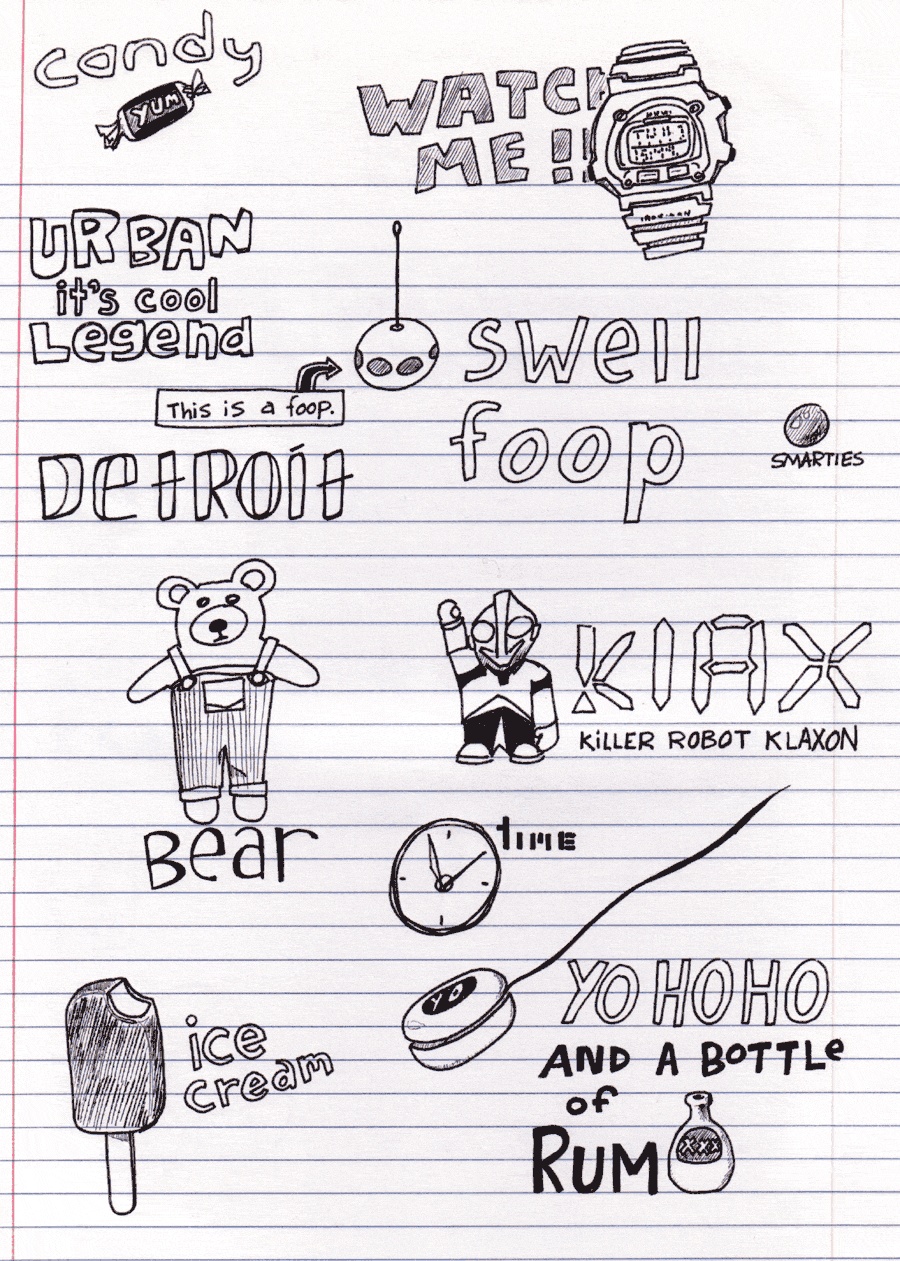 candy
YUM
WATCH
ME!!
URBAN
it's cool
Legend
swell
foop
This is a foop.
SMARTIES
DetROit
KlAX
KiLLER ROBOT KLAXON
Bear
tIME
YO
YO HO HO
AND A BOTTLe
of
RUM
XXX
ice
cream